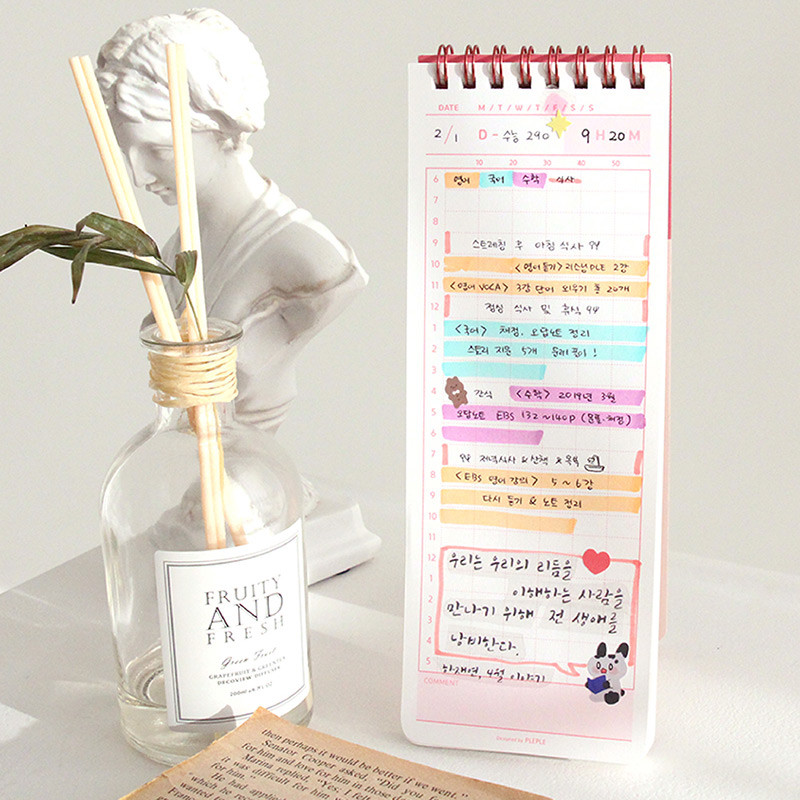 DATE M / T / W / T / F / S / S
2/1 D - 수능 290 9 H 20 M
10 20 30 40 50
6 영어 국어 수학 식사
7
8
9 스트레칭 후 아침 식사
10 <영어듣기> 2강
11 <영어 VOCA> 3강 단어 외우기 총 20개
12 점심 식사 및 휴식
1 <국어> 채점, 오답노트 정리
2 스토리 지문 5개 문제 풀이!
3
4 간식 <수학> 2019년 3월
5 오답노트 EBS 132~140P (문풀·채점)
6
7 저녁식사 & 산책 & 목욕
8 <EBS 영어 강의> 5~6강
9 다시 듣기 & 노트 정리
10
11
12 우리는 우리의 리듬을
1 이해하는 사람을
2 만나기 위해 전 생애를
3
4 낭비한다.
5 한재연, 4월 이야기
COMMENT
Designed by PLEPLE
FRUITY
AND
FRESH
Green Forest
GRAPEFRUIT & GREEN TEA
DECOVIEW DIFFUSER
200ml 6.8 FL OZ
then perhaps it would be better if we went."
Senator Cooper asked, "Did you f
for him and love for him in those da
Marina replied, "Yes, I fel
it was difficult for him
for him."
"which he rec
He had appli
wanted
Franc